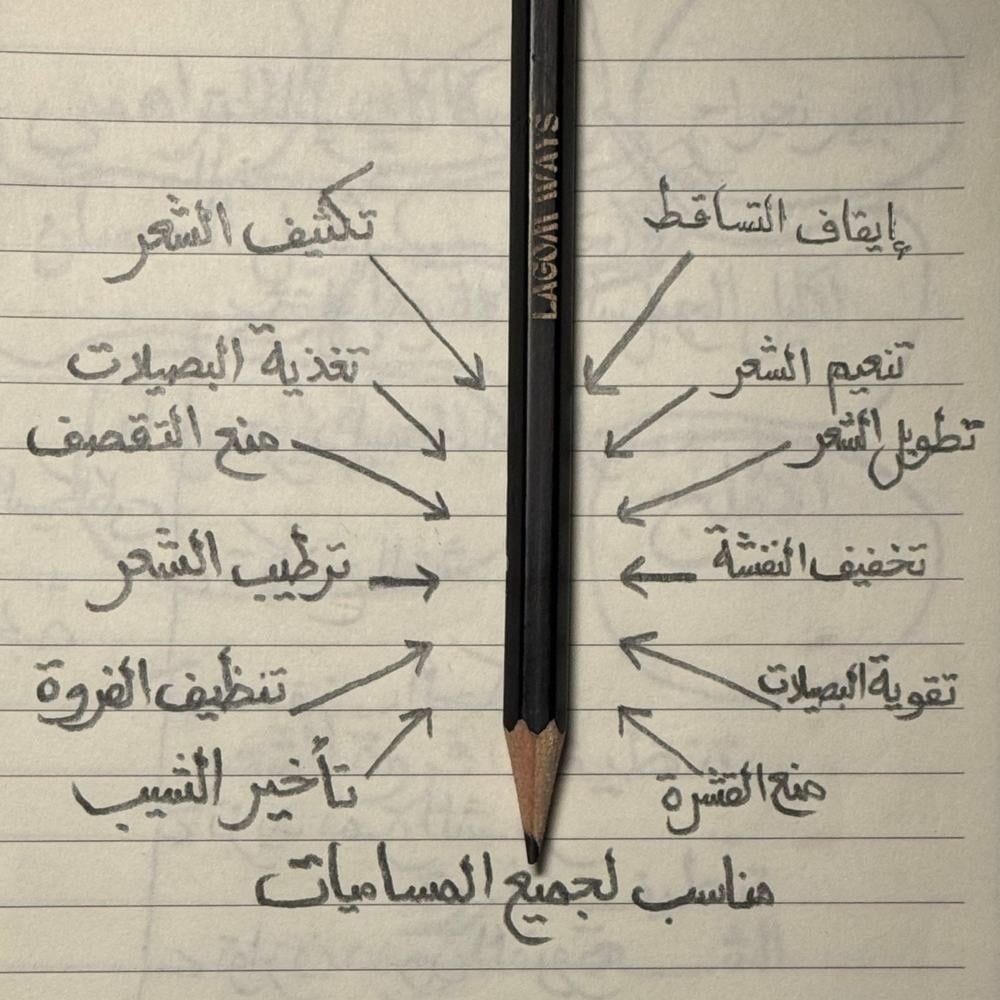 إيقاف التساقط
تكثيف الشعر
تنعيم الشعر
تغذية البصيلات
تطويل الشعر
منع التقصف
تخفيف النفشة
ترطيب الشعر
تقوية البصيلات
تنظيف الفروة
منع القشرة
تأخير الشيب
مناسب لجميع المساميات